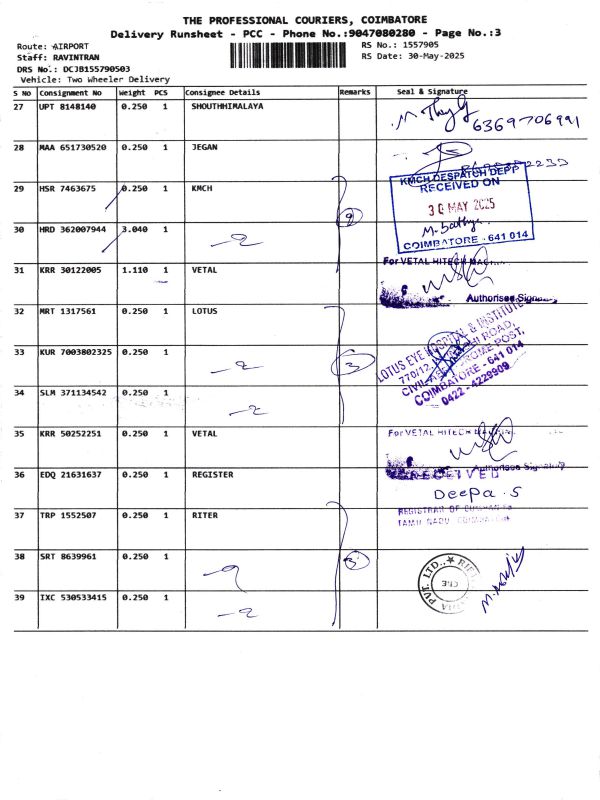 THE PROFESSIONAL COURIERS, COIMBATORE
Delivery Runsheet - PCC - Phone No.:9047080280 - Page No.:3
Route: AIRPORT
RS No.: 1557905
Staff: RAVINTRAN
RS Date: 30-May-2025
DRS No.: DCJB155790503
Vehicle: Two Wheeler Delivery
S No Consignment No Weight PCS Consignee Details Remarks Seal & Signature
27 UPT 8148140 0.250 1 SHOUTHHIMALAYA
6369706991
28 MAA 651730520 0.250 1 JEGAN
29 HSR 7463675 0.250 1 KMCH
KMCH DESPATCH DEPT
RECEIVED ON
30 MAY 2025
M. Sathya
COIMBATORE - 641 014
30 HRD 362007944 3.040 1
31 KRR 30122005 1.110 1 VETAL
For VETAL HITECH
Authorised Signatory
32 MRT 1317561 0.250 1 LOTUS
33 KUR 7003802325 0.250 1
3
LOTUS EYE HOSPITAL & INSTITUTE
770/12, ROAD,
CIVIL AERODROME POST,
COIMBATORE - 641 014
0422 - 4229909
34 SLM 371134542 0.250 1
35 KRR 50252251 0.250 1 VETAL
For VETAL HITECH
Authorised Signatory
36 EDQ 21631637 0.250 1 REGISTER
RECEIVED
Deepa.S
REGISTRAR OF COMPANIES
TAMIL NADU, COIMBATORE
37 TRP 1552507 0.250 1 RITER
38 SRT 8639961 0.250 1
3
PVT. LTD.,
CBE
39 IXC 530533415 0.250 1